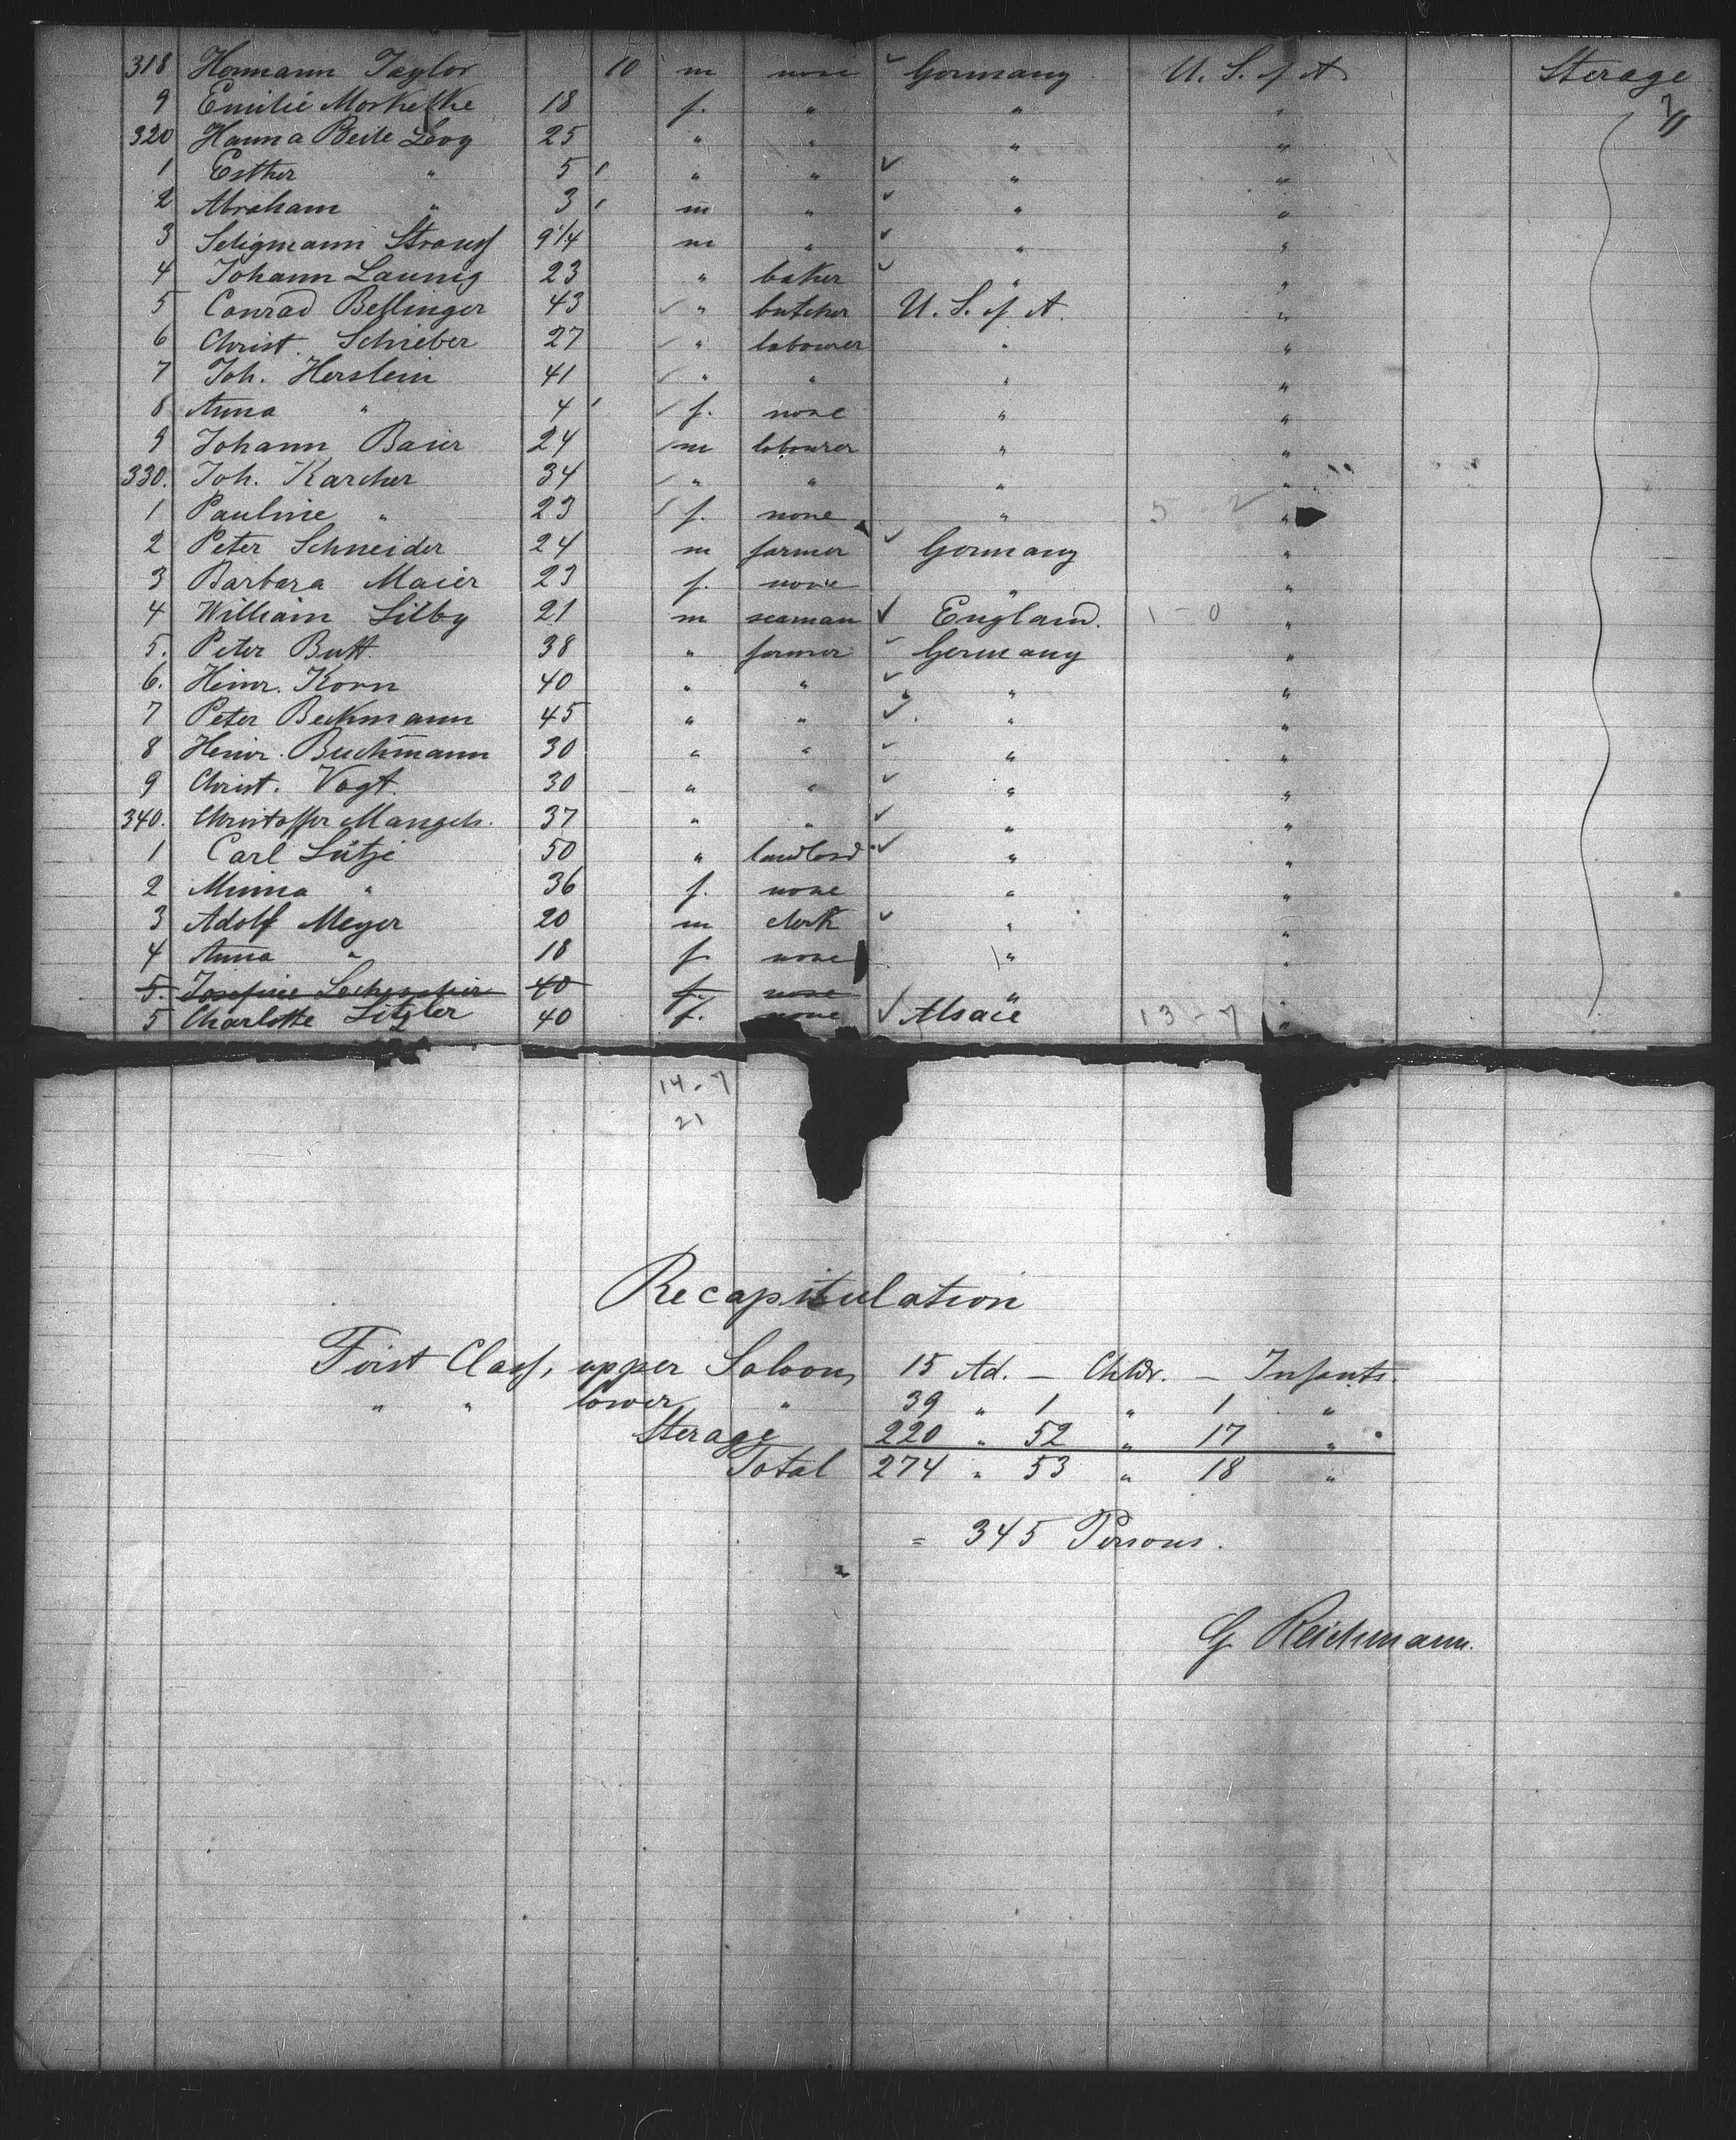 318 Hermann Taylor 10 m none Germany U. S. of A Sterage
9 Emilie 18 f. " " "
320 Hanna Beile Levy 25 " " " "
1 Esther " 5 " " " "
2 Abraham " 3 m " " "
3 Seligmann Strauss 9 1/4 m " " "
4 Johann Launig 23 " baker " "
5 Conrad Bellinger 43 " butcher U. S. of A. "
6 Christ. Schrieber 27 " labourer " "
7 Joh. Herslein 41 " " " "
8 Anna " 4 f. none " "
9 Johann Baier 24 m labourer " "
330. Joh. Karcher 34 " " " "
1 Pauline " 23 f. none " 5 2 "
2 Peter Schneider 24 m farmer Germany "
3 Barbara Maier 23 f. none " "
4 William Silby 21 m seaman England. 1 - 0 "
5. Peter Butt 38 " farmer Germany "
6. Heinr. Korn 40 " " " "
7 Peter Beckmann 45 " " " "
8 Heinr. Buchmann 30 " " " "
9 Christ. Vogt. 30 " " " "
340. Christoffer Mangels. 37 " " " "
1 Carl Lütje 50 " landlord " "
2 Minna " 36 f. none " "
3 Adolf Meyer 20 m clerk " "
4 Anna " 18 f none " "
5. Josefine 40 f. none "
5 Charlotte Litzler 40 f. none Alsace 13 - 7 "
14 - 7
21
Recapitulation
First Class, upper Saloon, 15 Ad. — Chldr. — Infants.
" " lower " 39 " 1 " 1 "
Sterage 220 " 52 " 17 "
Total 274 " 53 " 18 "
= 345 Persons.
G Reichmann.